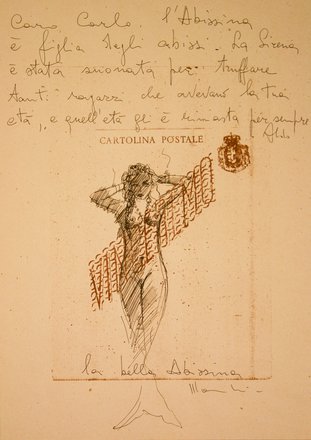 Caro Carlo. l'Abissina
è figlia degli abissi. La Sirena
è stata suonata per truffare
tanti ragazzi che avevano la tua
età, e quell'età gl è rimasta per sempre
Aldo
CARTOLINA POSTALE
la bella Abissina